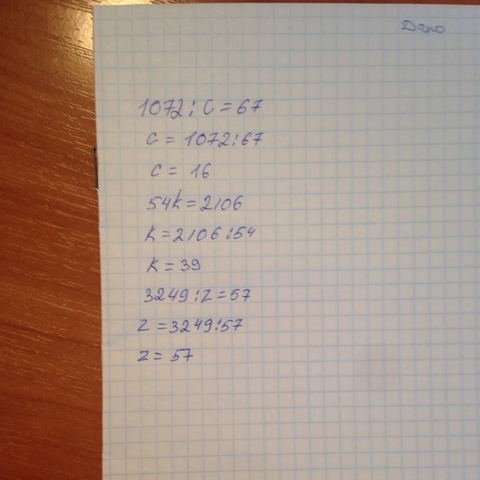 Дано
1072 : C = 67
C = 1072 : 67
C = 16
54k = 2106
k = 2106 : 54
k = 39
3249 : z = 57
z = 3249 : 57
z = 57